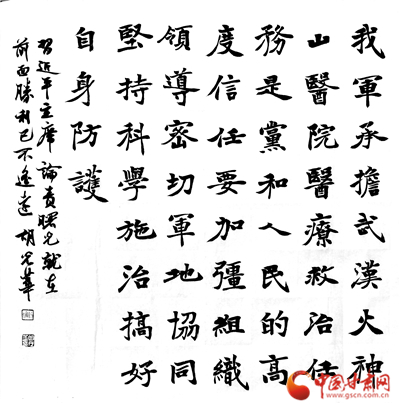 我軍承擔武漢火神
山醫院醫療救治任
務是黨和人民的高
度信任要加彊組織
領導密切軍地協同
堅持科學施治搞好
自身防護
習近平主席論責曙光就在
前面勝利已不遥遠 胡光華
中国甘肃网
www.gscn.com.cn